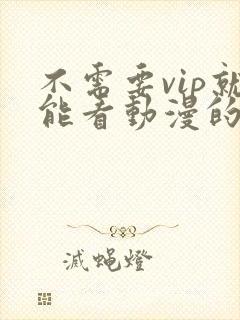 不需要vip就
能看動漫的
滅蝇燈